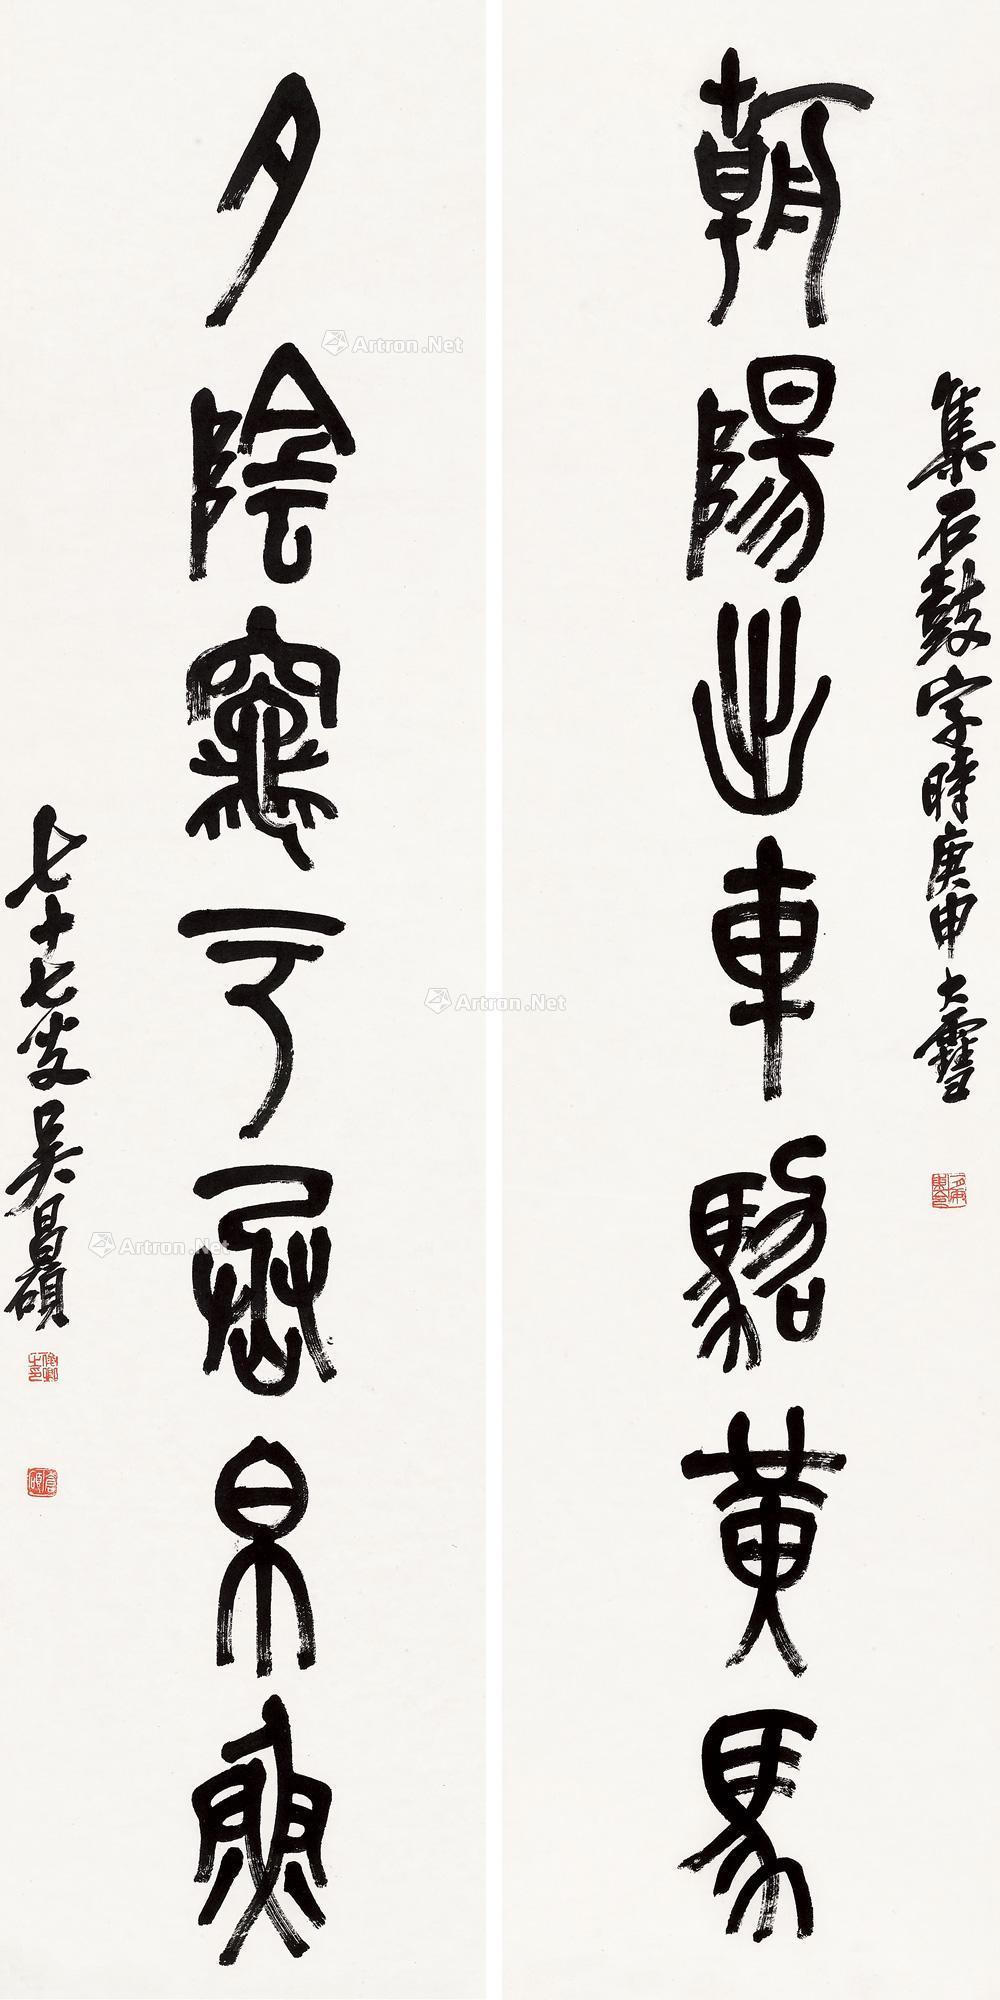 朝陽出車駱黃馬
夕陰寫可淵帛魚
集石鼓字時庚申大雪
七十七叟吳昌碩
Artron.Net
Artron.Net
Artron.Net